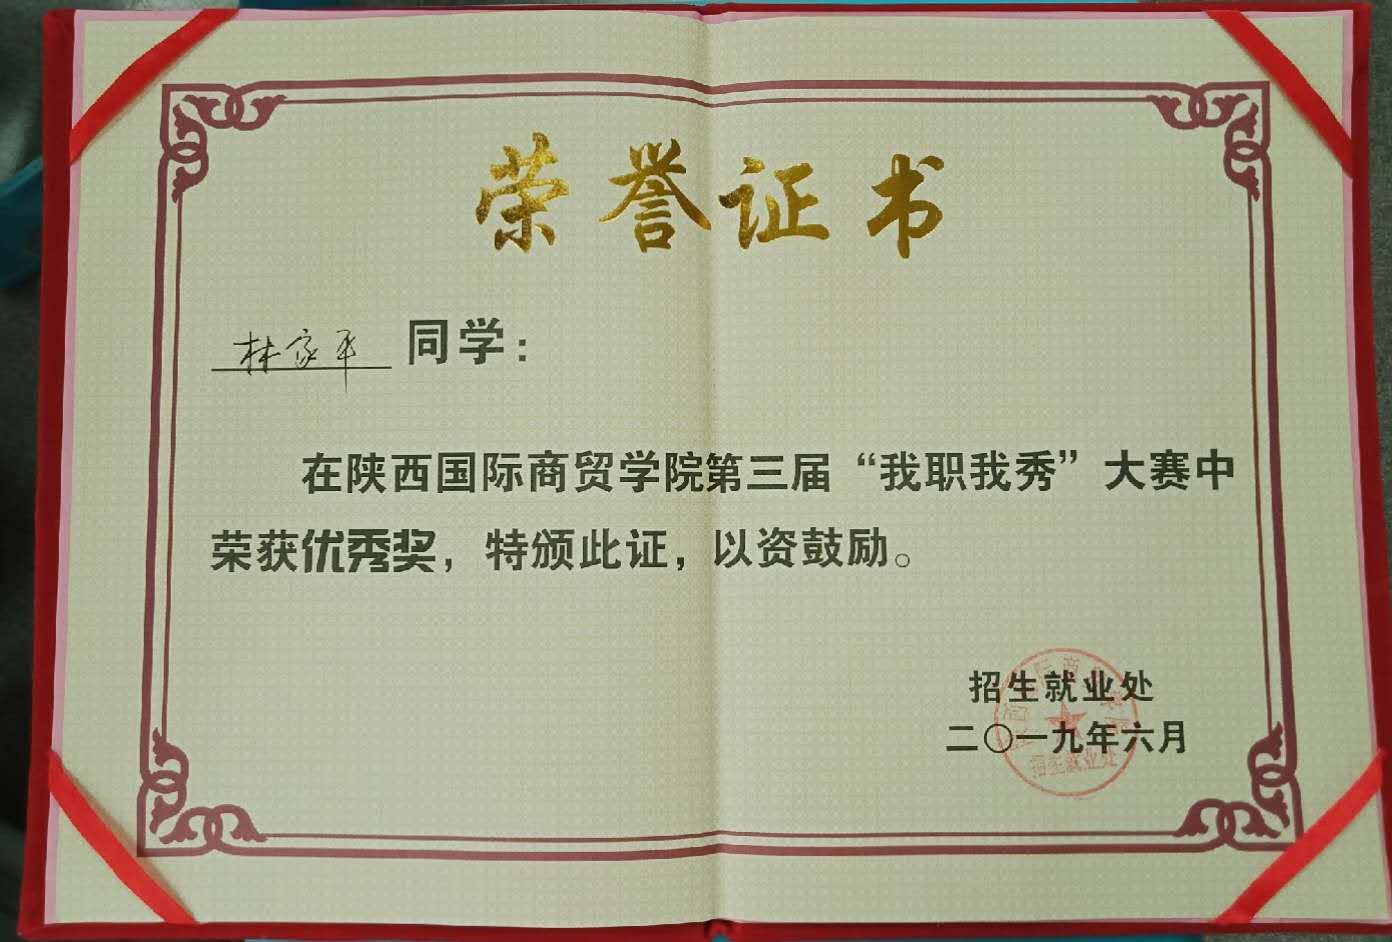 荣誉证书
林家平 同学：
在陕西国际商贸学院第三届“我职我秀”大赛中
荣获优秀奖，特颁此证，以资鼓励。
招生就业处
二〇一九年六月
招生就业处